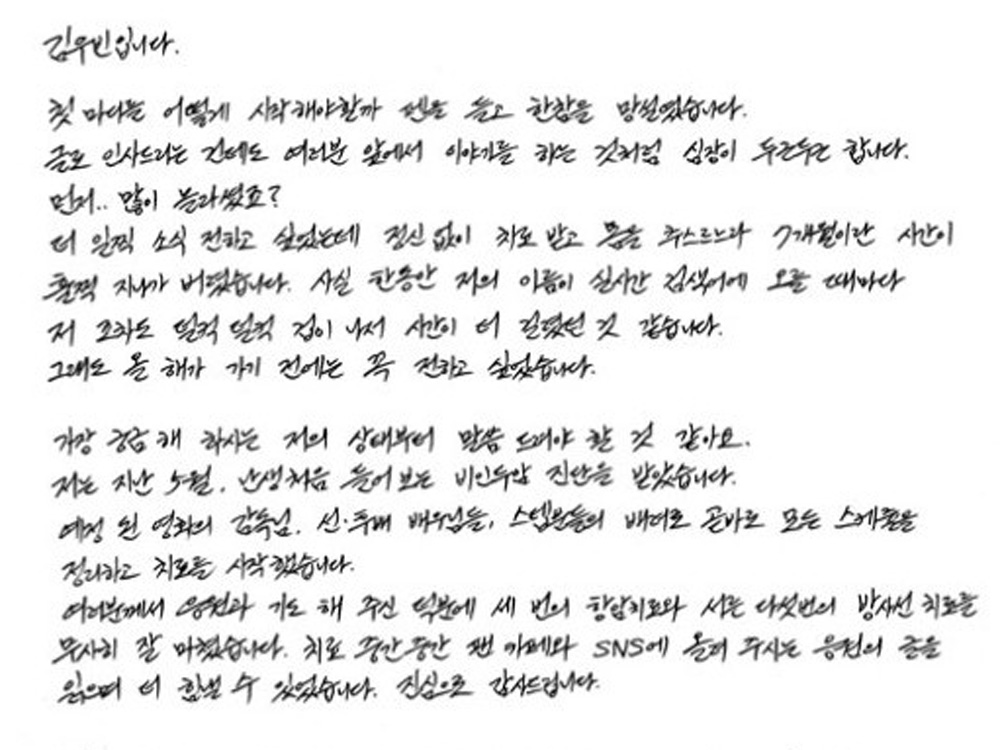 김우빈입니다.
첫 마디를 어떻게 시작해야할까 펜을 들고 한참을 망설였습니다.
글로 인사드리는 건데도 여러분 앞에서 이야기를 하는 것처럼 심장이 두근두근 합니다.
먼저.. 많이 놀라셨죠?
더 일찍 소식 전하고 싶었는데 정신없이 치료 받고 몸을 추스르느라 7개월이란 시간이
훌쩍 지나가 버렸습니다. 사실 한동안 저의 이름이 실시간 검색어에 오를 때마다
저 조차도 덜컥 덜컥 겁이 나서 시간이 더 걸렸던 것 같습니다.
그래도 올 해가 가기 전에는 꼭 전하고 싶었습니다.
가장 궁금해 하시는 저의 상태부터 말씀 드려야 할 것 같아요.
저는 지난 5월, 난생처음 들어보는 비인두암 진단을 받았습니다.
예정 된 영화의 감독님, 선·후배 배우님들, 스텝분들의 배려로 곧바로 모든 스케쥴을
정리하고 치료를 시작했습니다.
여러분께서 응원과 기도 해 주신 덕분에 세 번의 항암치료와 서른 다섯번의 방사선 치료를
무사히 잘 마쳤습니다. 치료 중간중간 팬 카페와 SNS에 올려 주시는 응원의 글을
읽으며 더 힘낼 수 있었습니다. 진심으로 감사드립니다.